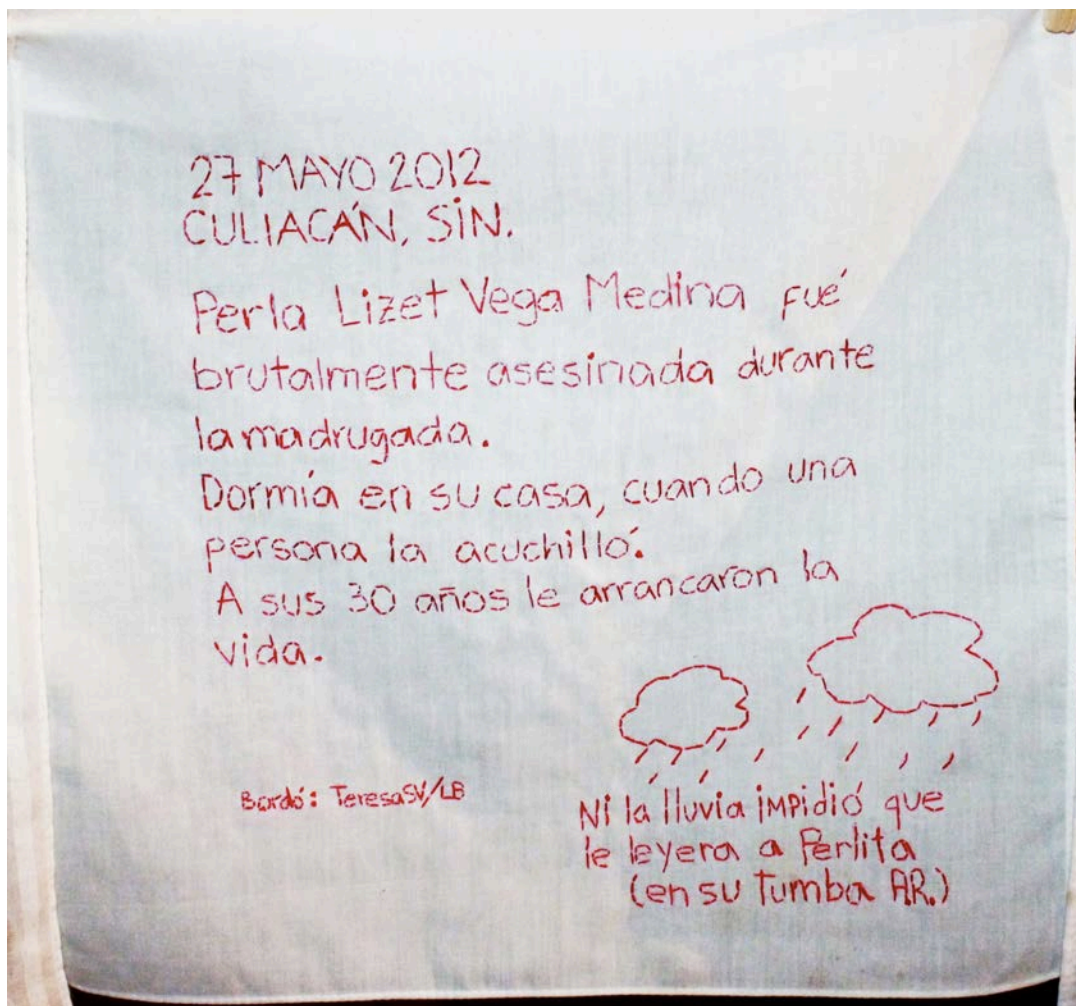 27 MAYO 2012
CULIACÁN, SIN.
Perla Lizet Vega Medina fué
brutalmente asesinada durante
la madrugada.
Dormía en su casa, cuando una
persona la acuchilló.
A sus 30 años le arrancaron la
vida.
Bordó: TeresaSV/LB
Ni la lluvia impidió que
le leyera a Perlita
(en su tumba AR.)